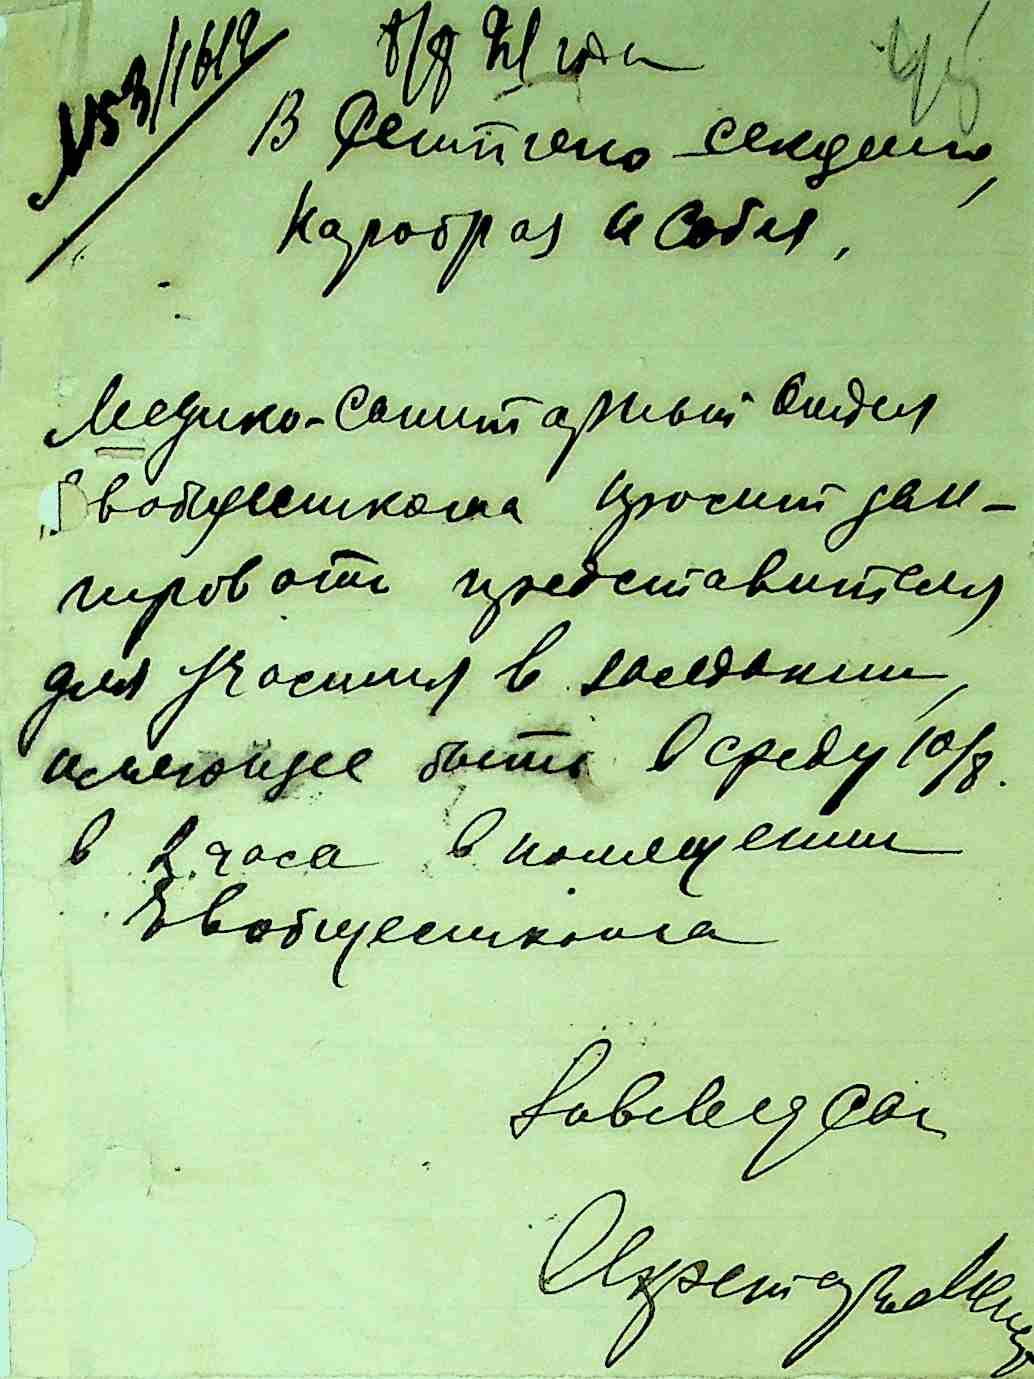 № 53/1612
8/8 21 года
В секцию,
Наробраз и Собез,
Медико-Санитарный Отдел
Евобщесткома просит деле-
гировать представителя
для участия в заседании,
имеющее быть в среду 10/8.
в 2 часа в помещении
Евобщесткома
Завмедсан
Секретарь